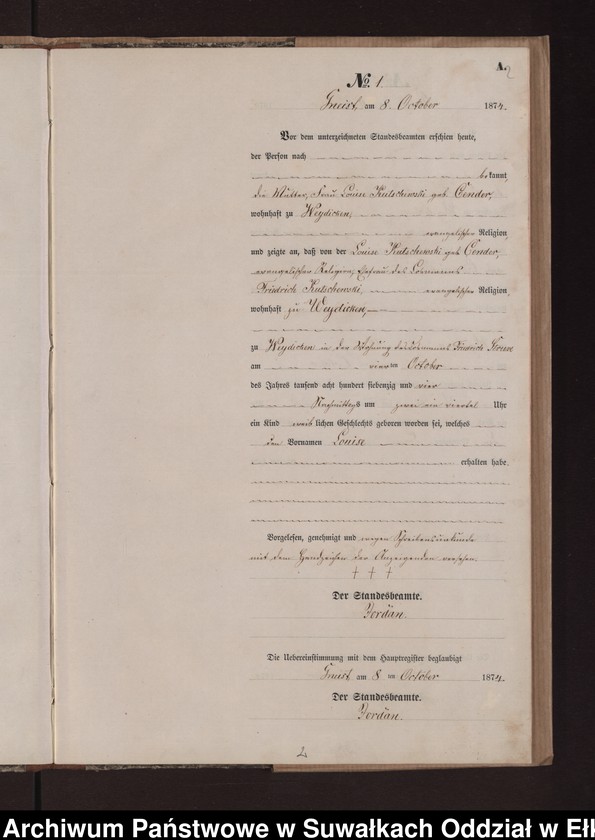 A.
2
No. 1.
am 8. October 1874.
Vor dem unterzeichneten Standesbeamten erschien heute,
der Person nach
bekannt,
die Mutter, Frau Louise Kutschewski geb. Cender,
wohnhaft zu Weydicken,
evangelischer Religion,
und zeigte an, daß von der Louise Kutschewski geb. Cender,
evangelischer Religion, Ehefrau des Losmanns
Friedrich Kutschewski, evangelischer Religion,
wohnhaft zu Weydicken,
zu Weydicken in der Wohnung des Losmanns Friedrich
am vierten October
des Jahres tausend acht hundert siebenzig und vier
Nachmittags um zwei ein viertel Uhr
ein Kind weiblichen Geschlechts geboren worden sei, welches
den Vornamen Louise
erhalten habe.
Vorgelesen, genehmigt und wegen Schreibensunkunde
mit dem Handzeichen der Anzeigenden versehen.
† † †
Der Standesbeamte.
Jordan.
Die Uebereinstimmung mit dem Hauptregister beglaubigt
am 8 ten October 1874.
Der Standesbeamte.
Jordan.
Archiwum Państwowe w Suwałkach Oddział w Ełk